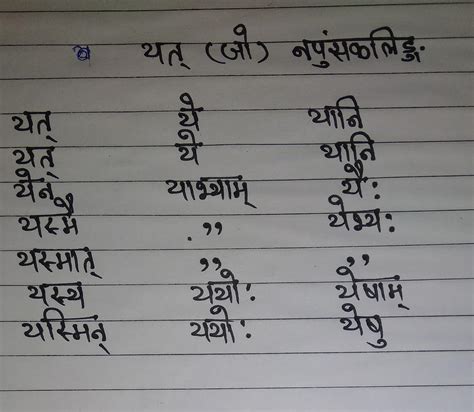 यत् (जो) नपुंसकलिङ्ग:
यत् ये यानि
यत् ये यानि
येन याभ्याम् यै:
यस्मै ,, येभ्य:
यस्मात् ,, ,,
यस्य ययो: येषाम्
यस्मिन् ययो: येषु